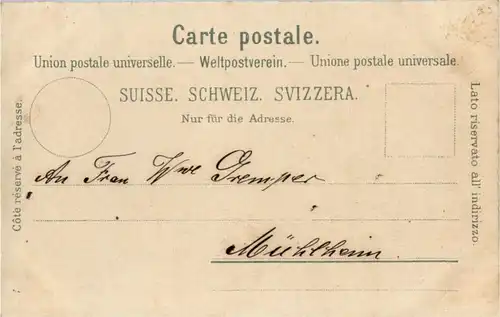 Carte postale.
Union postale universelle. — Weltpostverein. — Unione postale universale.
SUISSE. SCHWEIZ. SVIZZERA.
Nur für die Adresse.
Côté réservé à l'adresse.
Lato riservato all' indirizzo.
An Frau Wwe Gremper
Mühlheim.